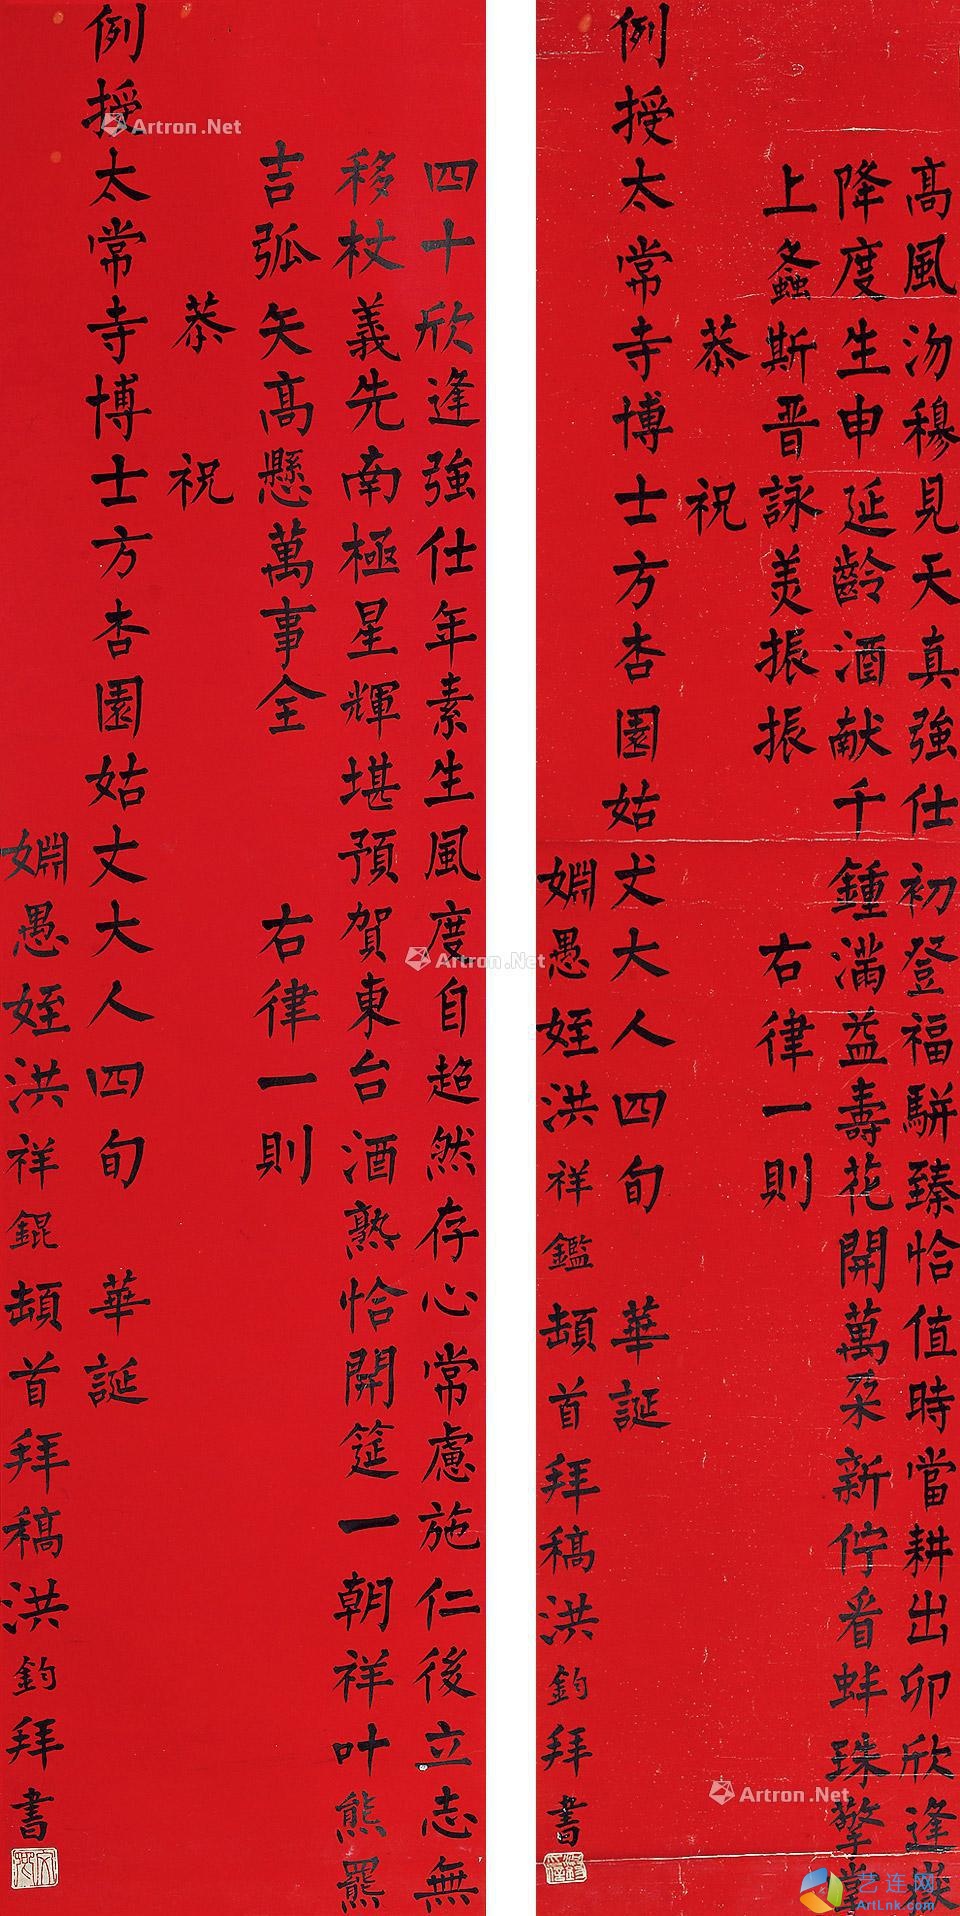 高風沕穆見天真強仕初登福駢臻恰值時當耕出卯欣逢嶽
降度生申延齡酒献千鍾滿益壽花開萬朵新佇看蚌珠擎掌
上螽斯晋詠羙振振 右律一則
恭祝
例授太常寺博士方杏園姑丈大人四旬 華誕
婣愚姪洪祥鑑頓首拜稿洪鈞拜書
四十欣逢強仕年素生風度自超然存心常慮施仁後立志無
移杖義先南極星輝堪預賀東台酒熟恰開筵一朝祥叶熊羆
吉弧矢高懸萬事全 右律一則
恭祝
例授太常寺博士方杏園姑丈大人四旬 華誕
婣愚姪洪祥錕頓首拜稿洪鈞拜書
Artron.Net
Artron.Net
Artron.Net
艺连网
ArtLnk.com